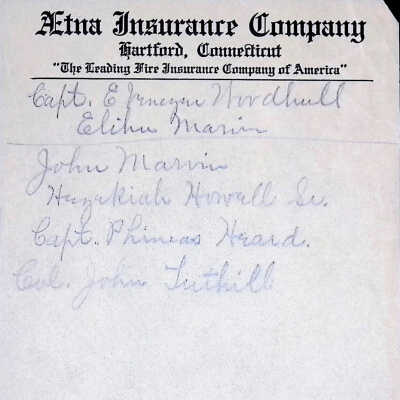 Ætna Insurance Company
Hartford, Connecticut
"The Leading Fire Insurance Company of America"
Capt. Ebenezer Woodhull
Elihu Marvin
John Marvin
Hezekiah Howell Sr.
Capt. Phineas Heard.
Col. John Tuthill